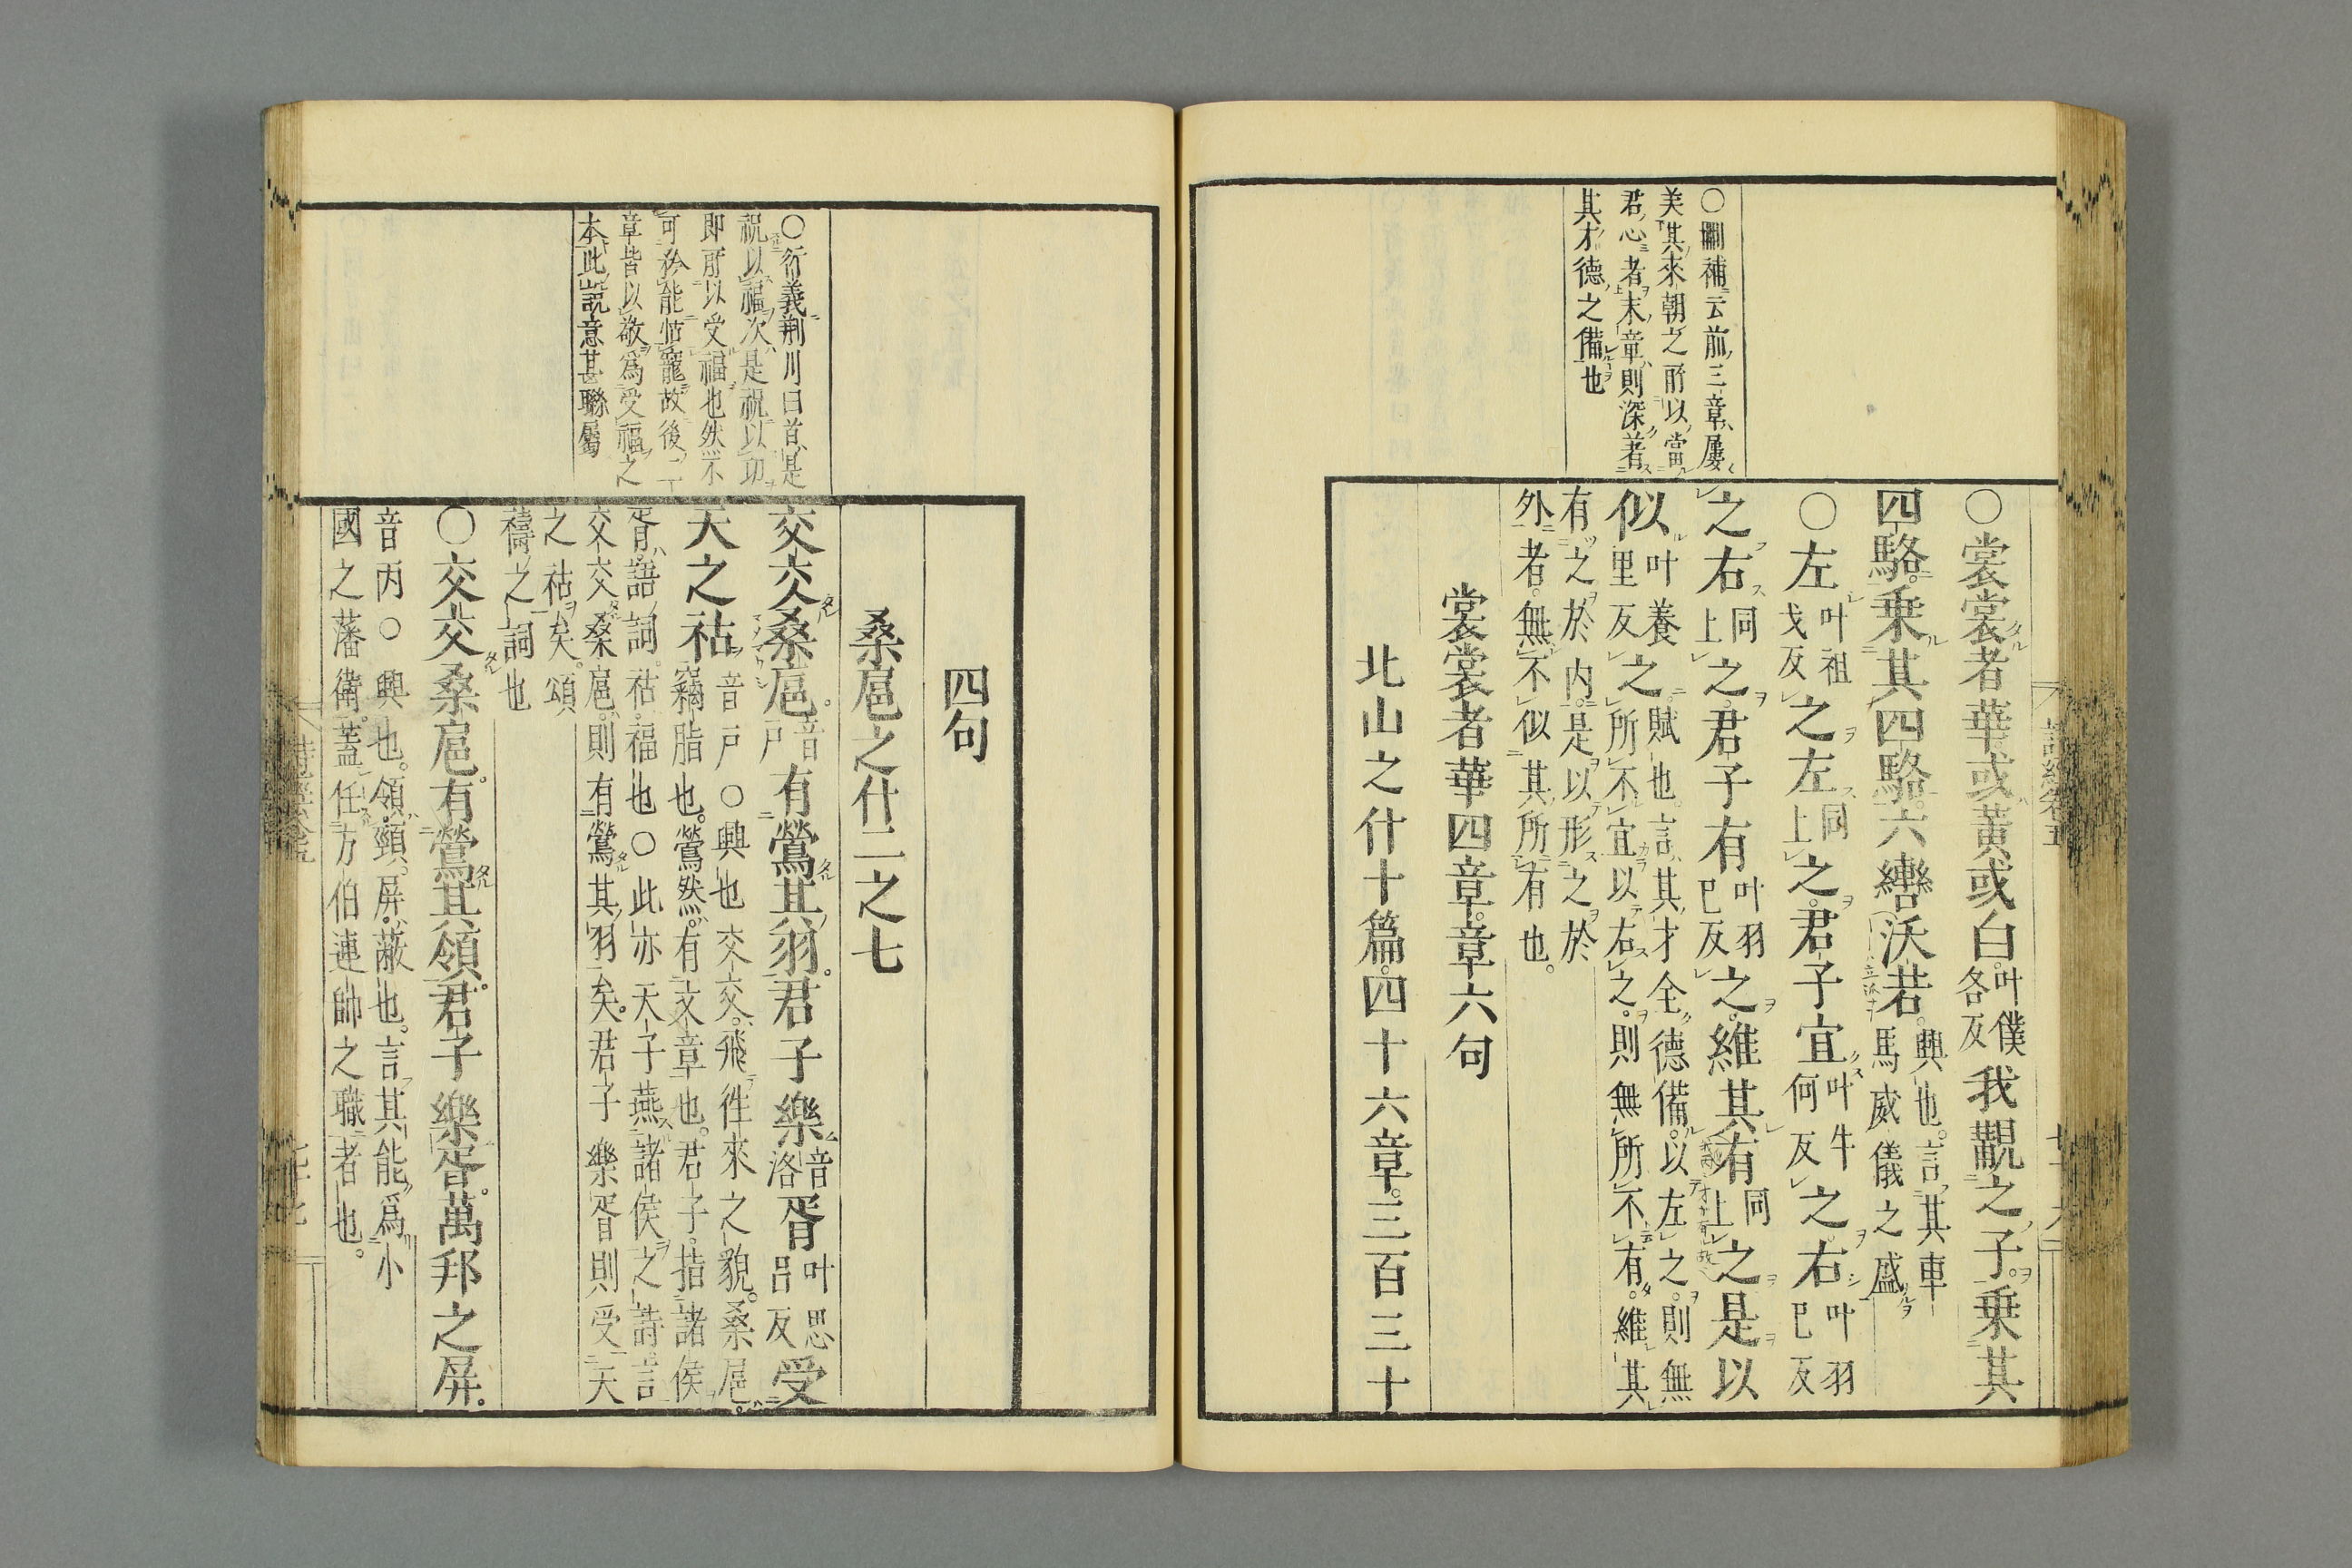 ○刪補云前三章屢
美其來朝之所以當
君心者末章則深著
其才德之備也
○裳裳者華或黃或白叶僕各反我覯之子乗其
四駱乗其四駱六轡沃若興也言其車馬威儀之盛
○左叶祖戈反之左同上之君子宜叶牛何反之右叶羽已反
之右同上之君子有叶羽已反之維其有同上之是以
似叶養里反之賦也言其才全德備以左之則無所不宜以右之則無所不有維其
有之於内是以形之於外者無不似其所有也
裳裳者華四章章六句
北山之什十篇四十六章三百三十
四句
桑扈之什二之七
○衍義荆川曰首是
祝以福次是祝以功
即所以受福也然不
可矜能怙寵故後二
章皆以敬爲受福之
本此説意甚聯屬
交交桑扈音戸有鶯其羽君子樂音洛胥叶思呂反受
天之祜音戸○興也交交飛徃來之貌桑扈竊脂也鶯然有文章也君子指諸侯
胥語詞祜福也○此亦天子燕諸侯之詩言交交桑扈則有鶯其羽矣君子樂胥則受天
之祜矣頌禱之詞也
○交交桑扈有鶯其領君子樂胥萬邦之屏
音丙○興也領頸屏蔽也言其能爲小國之藩衛蓋任方伯連帥之職者也